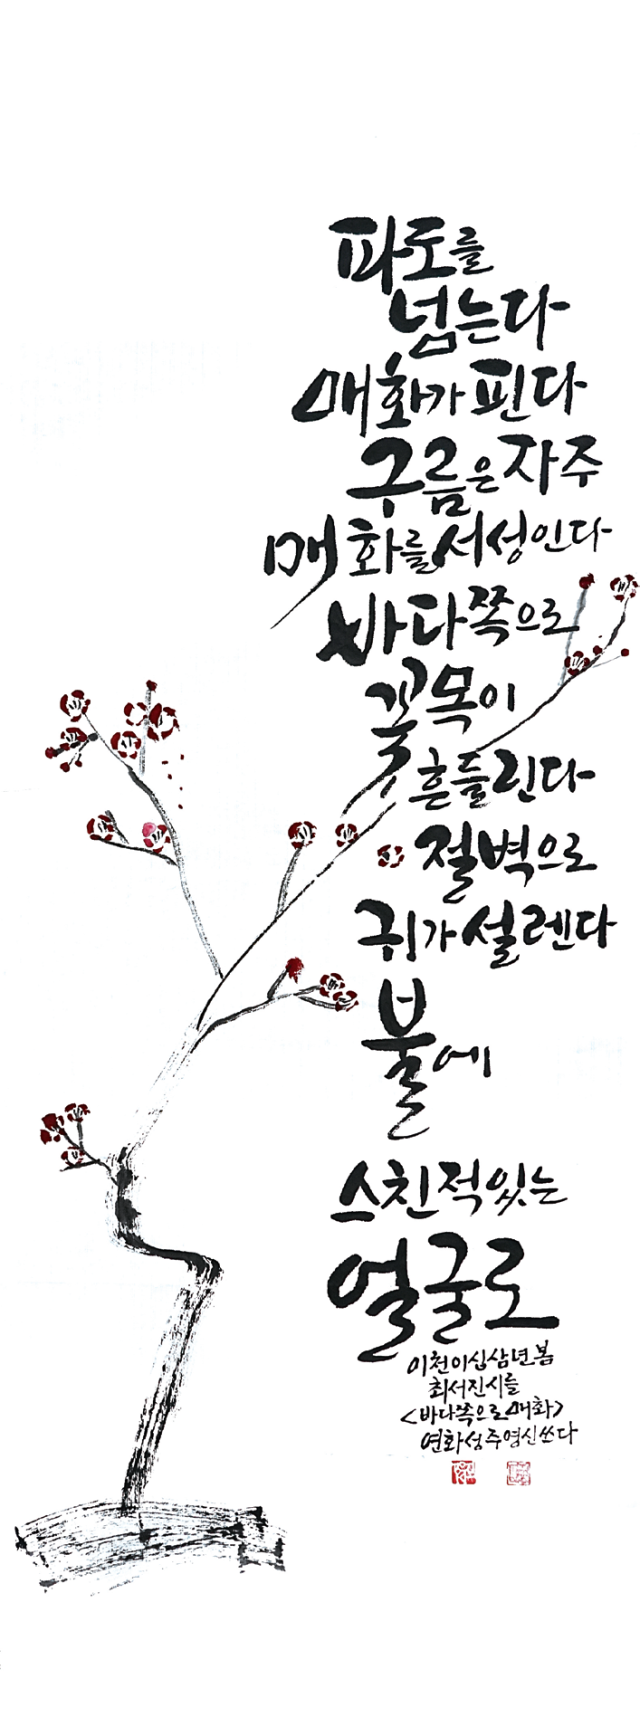 파도를
넘는다
매화가 핀다
구름은 자주
매화를 서성인다
바다쪽으로
꽃목이
흔들린다
절벽으로
귀가 설렌다
불에
스친 적 있는
얼굴로
이천이십삼년 봄
최서진 시를
<바다쪽으로 매화>
연화성 주영신 쓰다